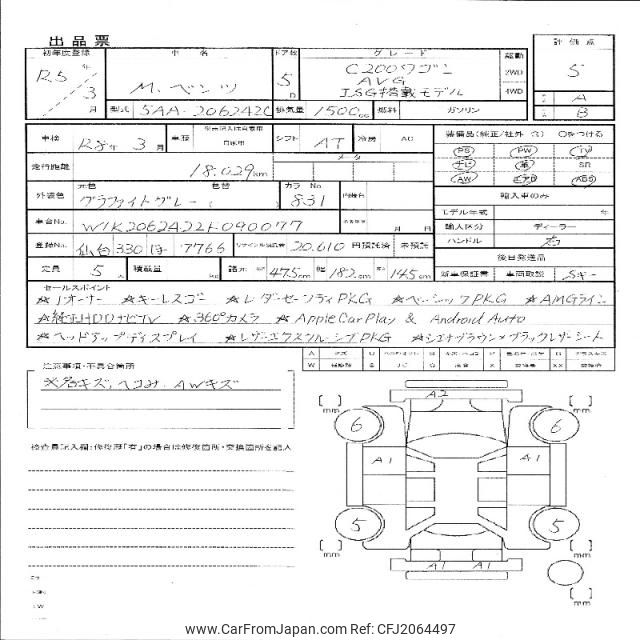 出品票
初年度登録 R5年 3月
車名 M.ベンツ
ドア数 5 D
グレード C200ワゴン
AVG
ISG搭載モデル
駆動 2WD 4WD
評価点 5
A
B
型式 5AA-206242C 排気量 1500cc 燃料 ガソリン
車検 R8年 3月 車歴 自家用 シフト AT 冷房 AC
走行距離 18,029km
外装色 元色 グラファイトグレー 色替 ( カラーNo 831
車台No. W1K2062422F090077
登録No. 仙台 330 ほ 7766 リサイクル預託金 20,610 円預託済 未預託
定員 5人 積載量 kg 諸元 長 475cm 幅 182cm 高 145cm
装備品(純正/社外 ○をつける
PS PW TV
ナビ 革 SR
AW エアB ABS
輸入車のみ
モデル年式 年
輸入区分 ディーラー
ハンドル 右
後日発送品
新車保証書 車両取説 Sキー
セールスポイント
☆1オーナー ☆キーレスゴー ☆レーダーセーフティPKG ☆ベーシックPKG ☆AMGライン
☆純正HDDナビTV ☆360°カメラ ☆Apple CarPlay & Android Auto
☆ヘッドアップディスプレイ ☆レザーエクスクルーシブPKG ☆シエナブラウン×ブラックレザーシート
注意事項・不具合箇所
※各キズ、ヘコみ、AWキズ
検査員記入欄:修復歴「有」の場合は修復箇所・交換箇所を記入
A2
6
6
A1
A1
5
5
A1
A1
[ ]mm
[ ]mm
[ ]mm
[ ]mm
[ ]mm
www.CarFromJapan.com Ref: CFJ2064497